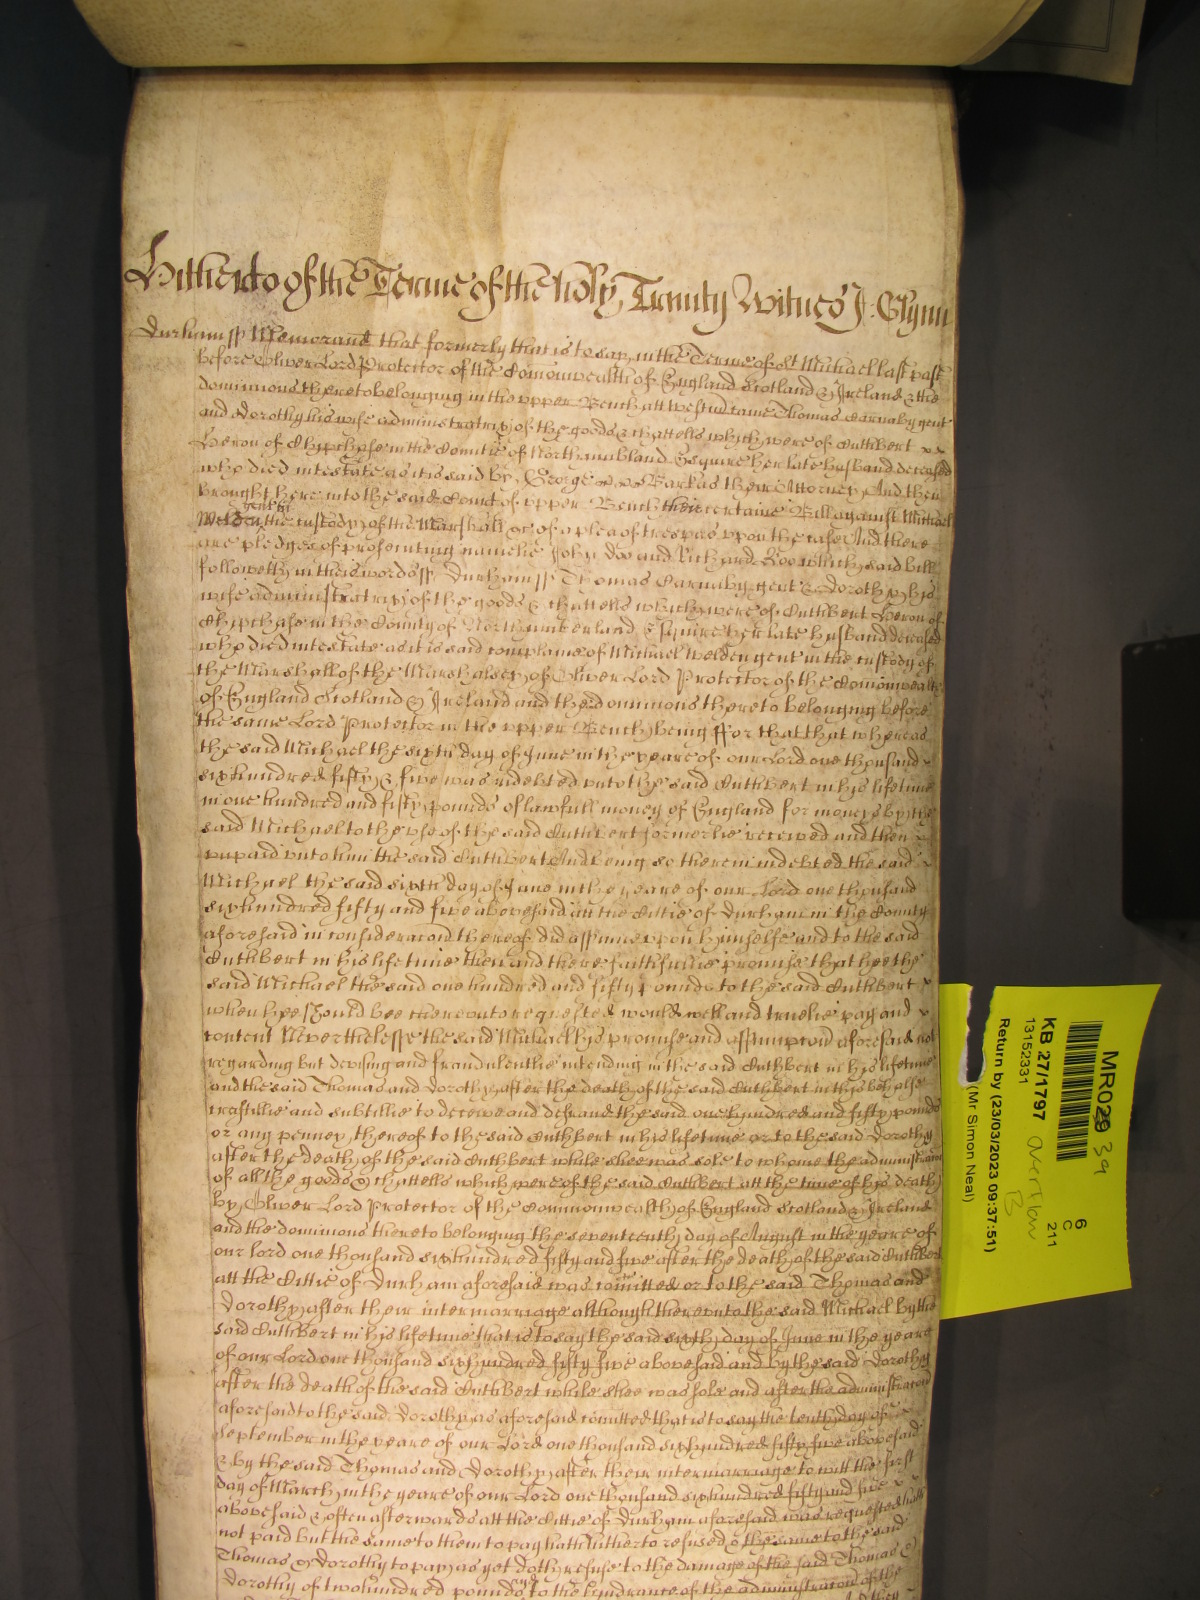 Hitherto of the Terme of the holy Trinity Witnes J: Glynn
Durham ss Memorand that formerly that is to say in the Terme of St Michael last past
before Oliver Lord Protector of the Comonwealth of England Scotland & Ireland & the
dominions thereto belonging in the upper Bench att Westm came Thomas Carnaby gent
and Dorothy his wife administratrix of the goods & chattells which were of Cuthbert
Heron of Chipchase in the Countie of Northumbland Esquire her late husband deceased
who died intestate as it is said by George Barkas their Attorney And then
brought here into the said Court of upper Bench their certaine Bill against Michael
Welden gent in the custody of the Marshall &c of a plea of trespas upon the case And there
are pledges of prosecuting namelie John Doo and Richard Roo which said bill
followeth in theis words ss Durham ss Thomas Carnaby gent & Dorothy his
wife administratrix of the goods & chattells which were of Cuthbert Heron of
Chipchase in the County of Northumberland Esquire her late husband deceased
who died intestate as it is said complaine of Michael Welden gent in the custody of
the Marshall of the Marshalsey of Oliver Lord Protector of the Comonwealth
of England Scotland & Ireland and the dominions thereto belonging before
the same Lord Protector in the upper Bench being ffor that that whereas
the said Michael the sixth day of June in the yeare of our Lord one thousand
sixhundred fifty & five was indebted unto the said Cuthbert in his lifetime
in one hundred and fifty pounds of lawfull money of England for moneys by the
said Michael to the use of the said Cuthbert formerlie received and then
unpaid unto him the said Cuthbert And being so therein indebted the said
Michael the said sixth day of June in the yeare of our Lord one thousand
sixhundred fifty and five abovesaid att the Cittie of Durham in the County
aforesaid in consideracon thereof did assume upon himselfe and to the said
Cuthbert in his life time then and there faithfullie promise that hee the
said Michael the said one hundred and fifty pounds to the said Cuthbert
when hee should bee thereunto requested would well and truelie pay and
content Neverthelesse the said Michael his promise and assumpcon aforesaid not
regarding but devising and fraudulentlie intending in the said Cuthbert in his lifetime
and the said Thomas and Dorothy after the death of the said Cuthbert in this behalfe
craftillie and subtillie to deceive and defraud the said one hundred and fifty pounds
or any penney thereof to the said Cuthbert in his lifetime or to the said Dorothy
after the death of the said Cuthbert while shee was sole to whome the administracon
of all the goods & chattells which were of the said Cuthbert att the time of his death
by Oliver Lord Protector of the Commonwealth of England Scotland & Ireland
and the dominions thereto belonging the seventeenth day of August in the yeare of
our lord one thousand sixhundred fifty and five after the death of the said Cuthbert
att the Cittie of Durham aforesaid was comitted or to the said Thomas and
Dorothy after their intermarriage although thereunto the said Michael by the
said Cuthbert in his lifetime that is to say the said sixth day of June in the yeare
of our Lord one thousand sixhundred fifty five abovesaid and by the said Dorothy
after the death of the said Cuthbert while shee was sole and after the administracon
aforesaid to the said Dorothy as aforesaid comitted that is to say the tenth day of
September in the yeare of our Lord one thousand sixhundred fifty five abovesaid
& by the said Thomas and Dorothy after their intermarriage to witt the first
day of March in the yeare of our Lord one thousand sixhundred fifty and five
abovesaid & often afterwards att the Cittie of Durham aforesaid was requested hath
not paid but the same to them to pay hath hitherto refused & the same to the said
Thomas & Dorothy to pay as yet doth refuse to the damage of the said Thomas &
Dorothy of two hundred pounds and to the hindrance of the administracon of the
MR029 39
6
C
211
KB 27/1797
13152331
Return by (23/03/2023 09:37:51)
(Mr Simon Neal)